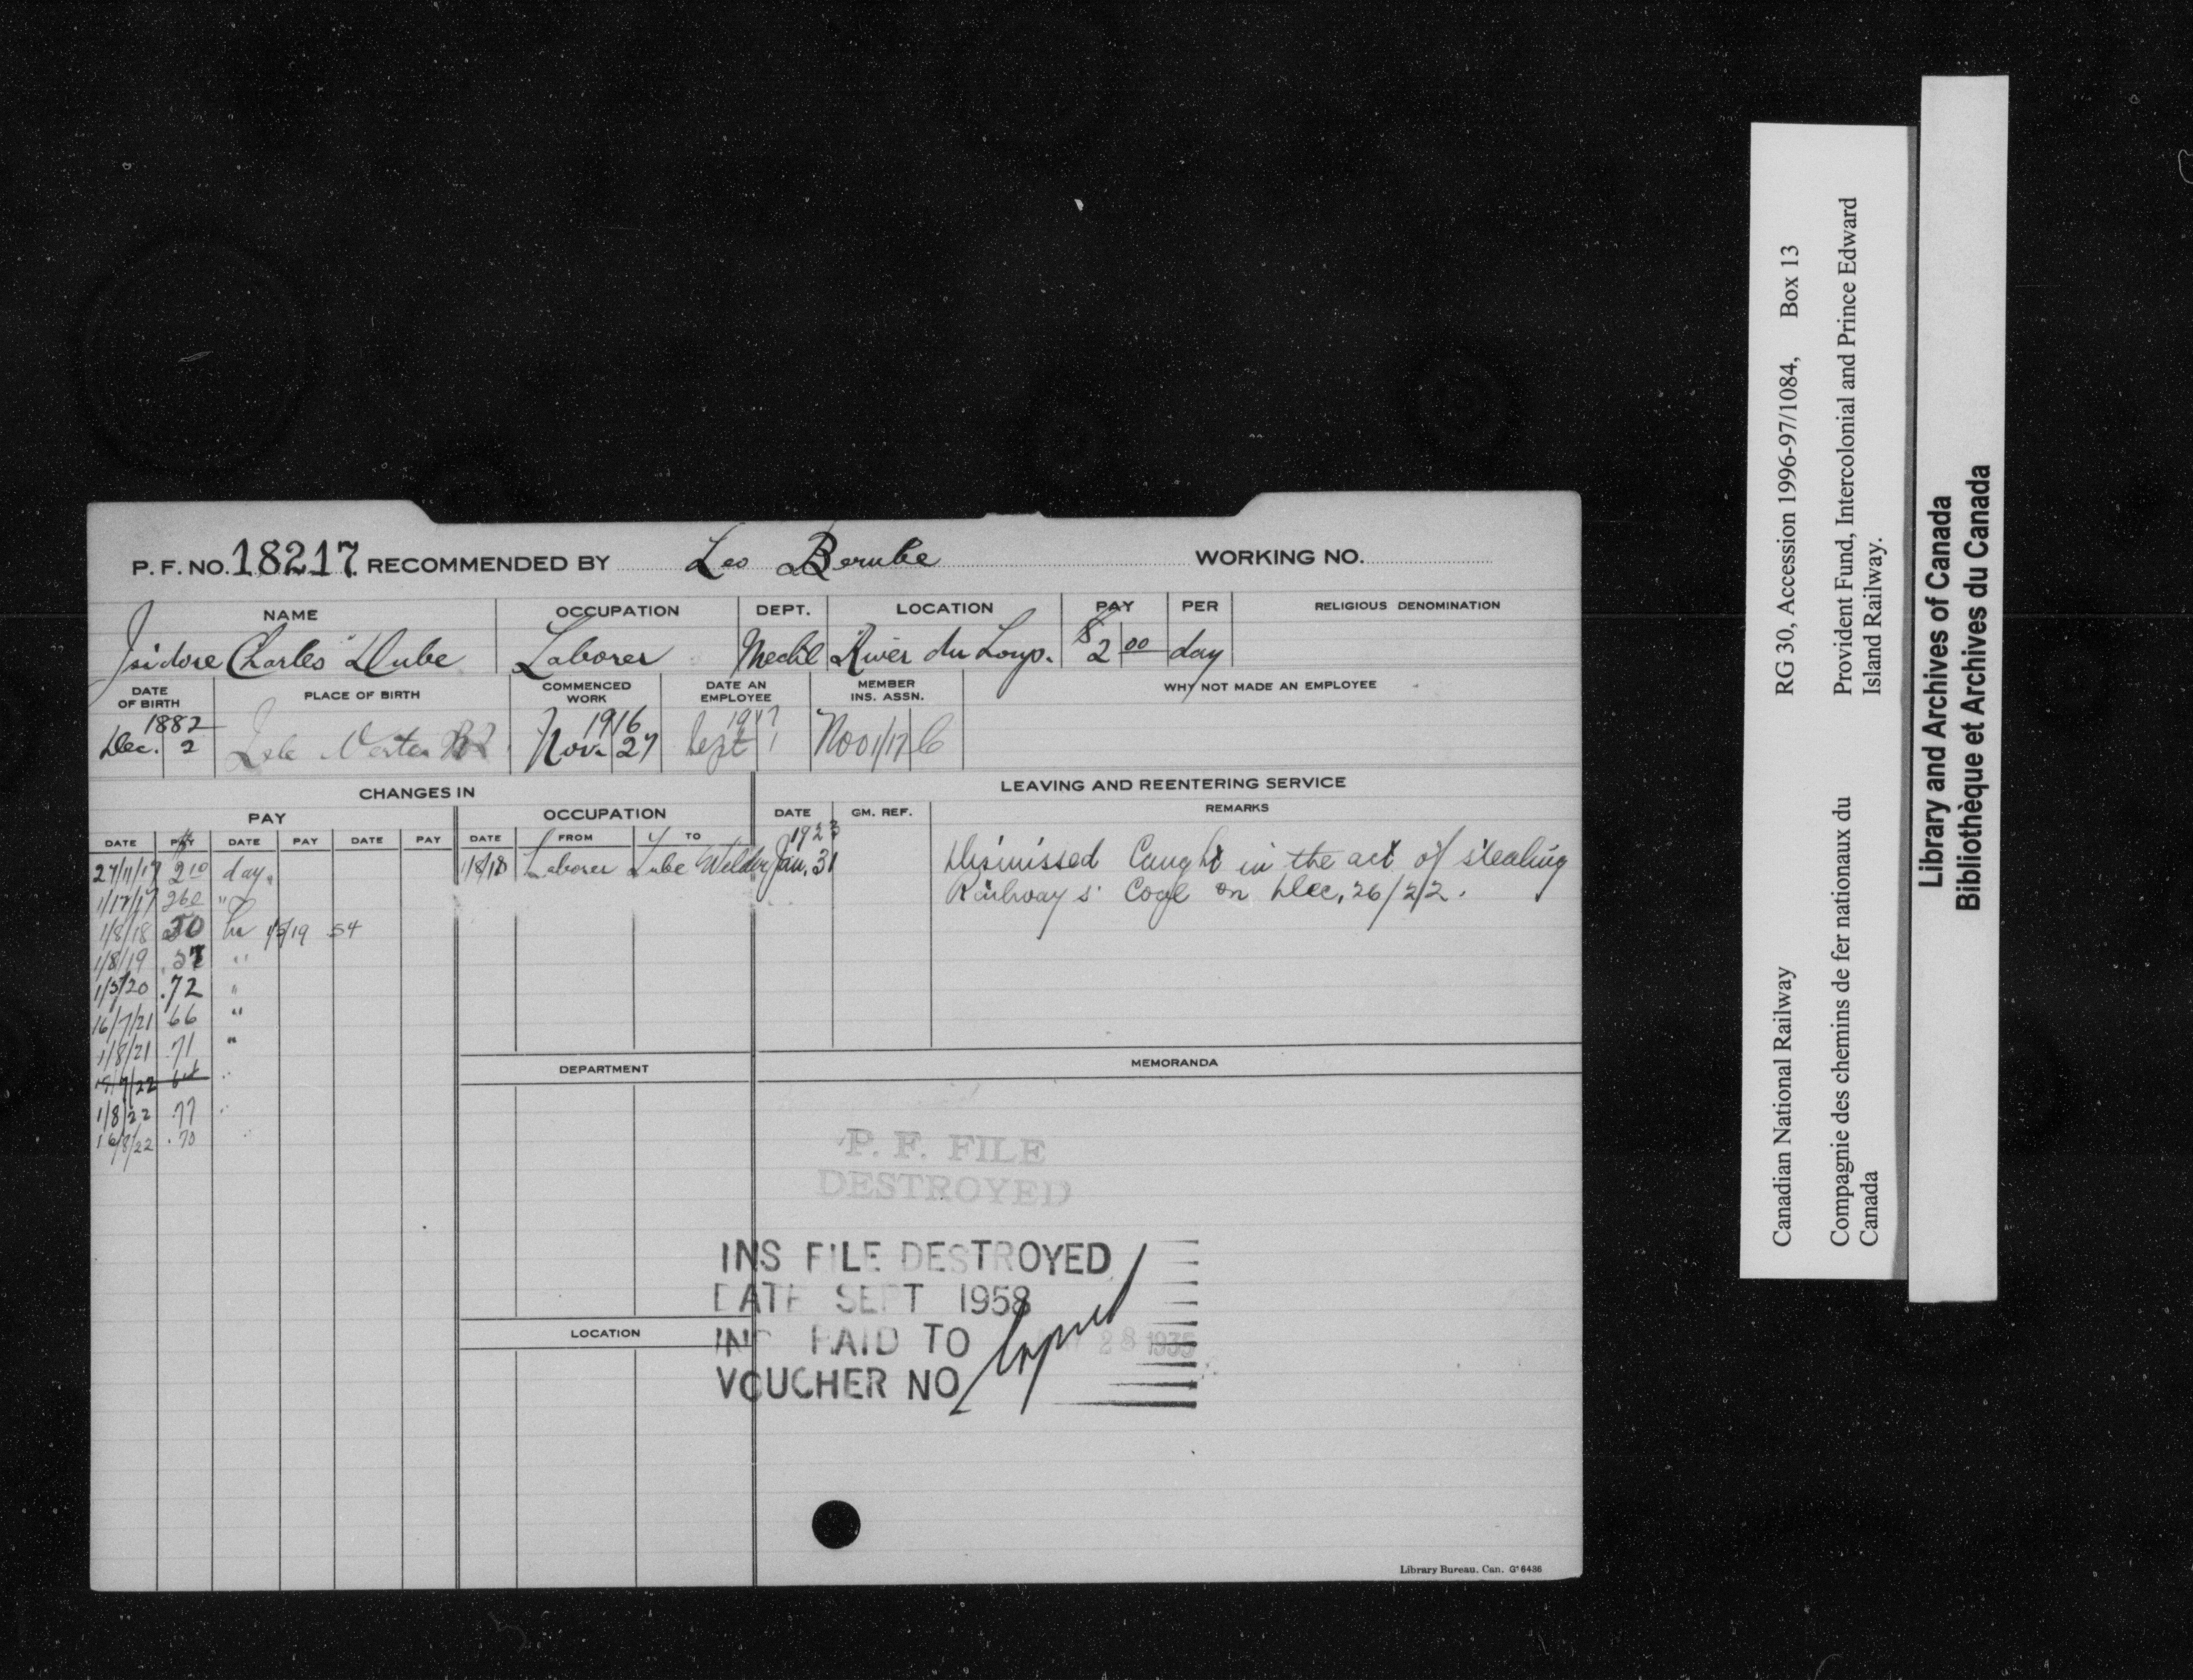 P. F. NO. 18217 RECOMMENDED BY Leo Berube WORKING NO.
NAME OCCUPATION DEPT. LOCATION PAY PER RELIGIOUS DENOMINATION
Isidore Charles Dube Laborer Mechl River du Loup. $2 00 day
DATE OF BIRTH PLACE OF BIRTH COMMENCED WORK DATE AN EMPLOYEE MEMBER INS. ASSN. WHY NOT MADE AN EMPLOYEE
1882 1916 1917
Dec. 2 Isle Nov. 27 Sept 1 C
CHANGES IN LEAVING AND REENTERING SERVICE
PAY OCCUPATION DATE GM. REF. REMARKS
DATE PAY DATE PAY DATE PAY DATE FROM TO 1923
27/11/17 2 10 day. 1/8/18 Laborer Tube Welder Jan. 31 Dismissed Caught in the act of stealing
Railway s' Coal on Dec, 26/22.
1/8/18 50 hr 1/5/19 54
1/8/19 .57 "
1/5/20 .72 "
16/7/21 66 "
1/8/21 .71 "
1/8/22 .77 "
16/8/22 .70
DEPARTMENT MEMORANDA
P. F. FILE
DESTROYED
INS FILE DESTROYED
DATE SEPT 1958
INS PAID TO
28 1935
VOUCHER NO
LOCATION
Library Bureau. Can. G'6436
Canadian National Railway RG 30, Accession 1996-97/1084, Box 13
Compagnie des chemins de fer nationaux du Provident Fund, Intercolonial and Prince Edward
Canada Island Railway.
Library and Archives of Canada
Bibliothèque et Archives du Canada